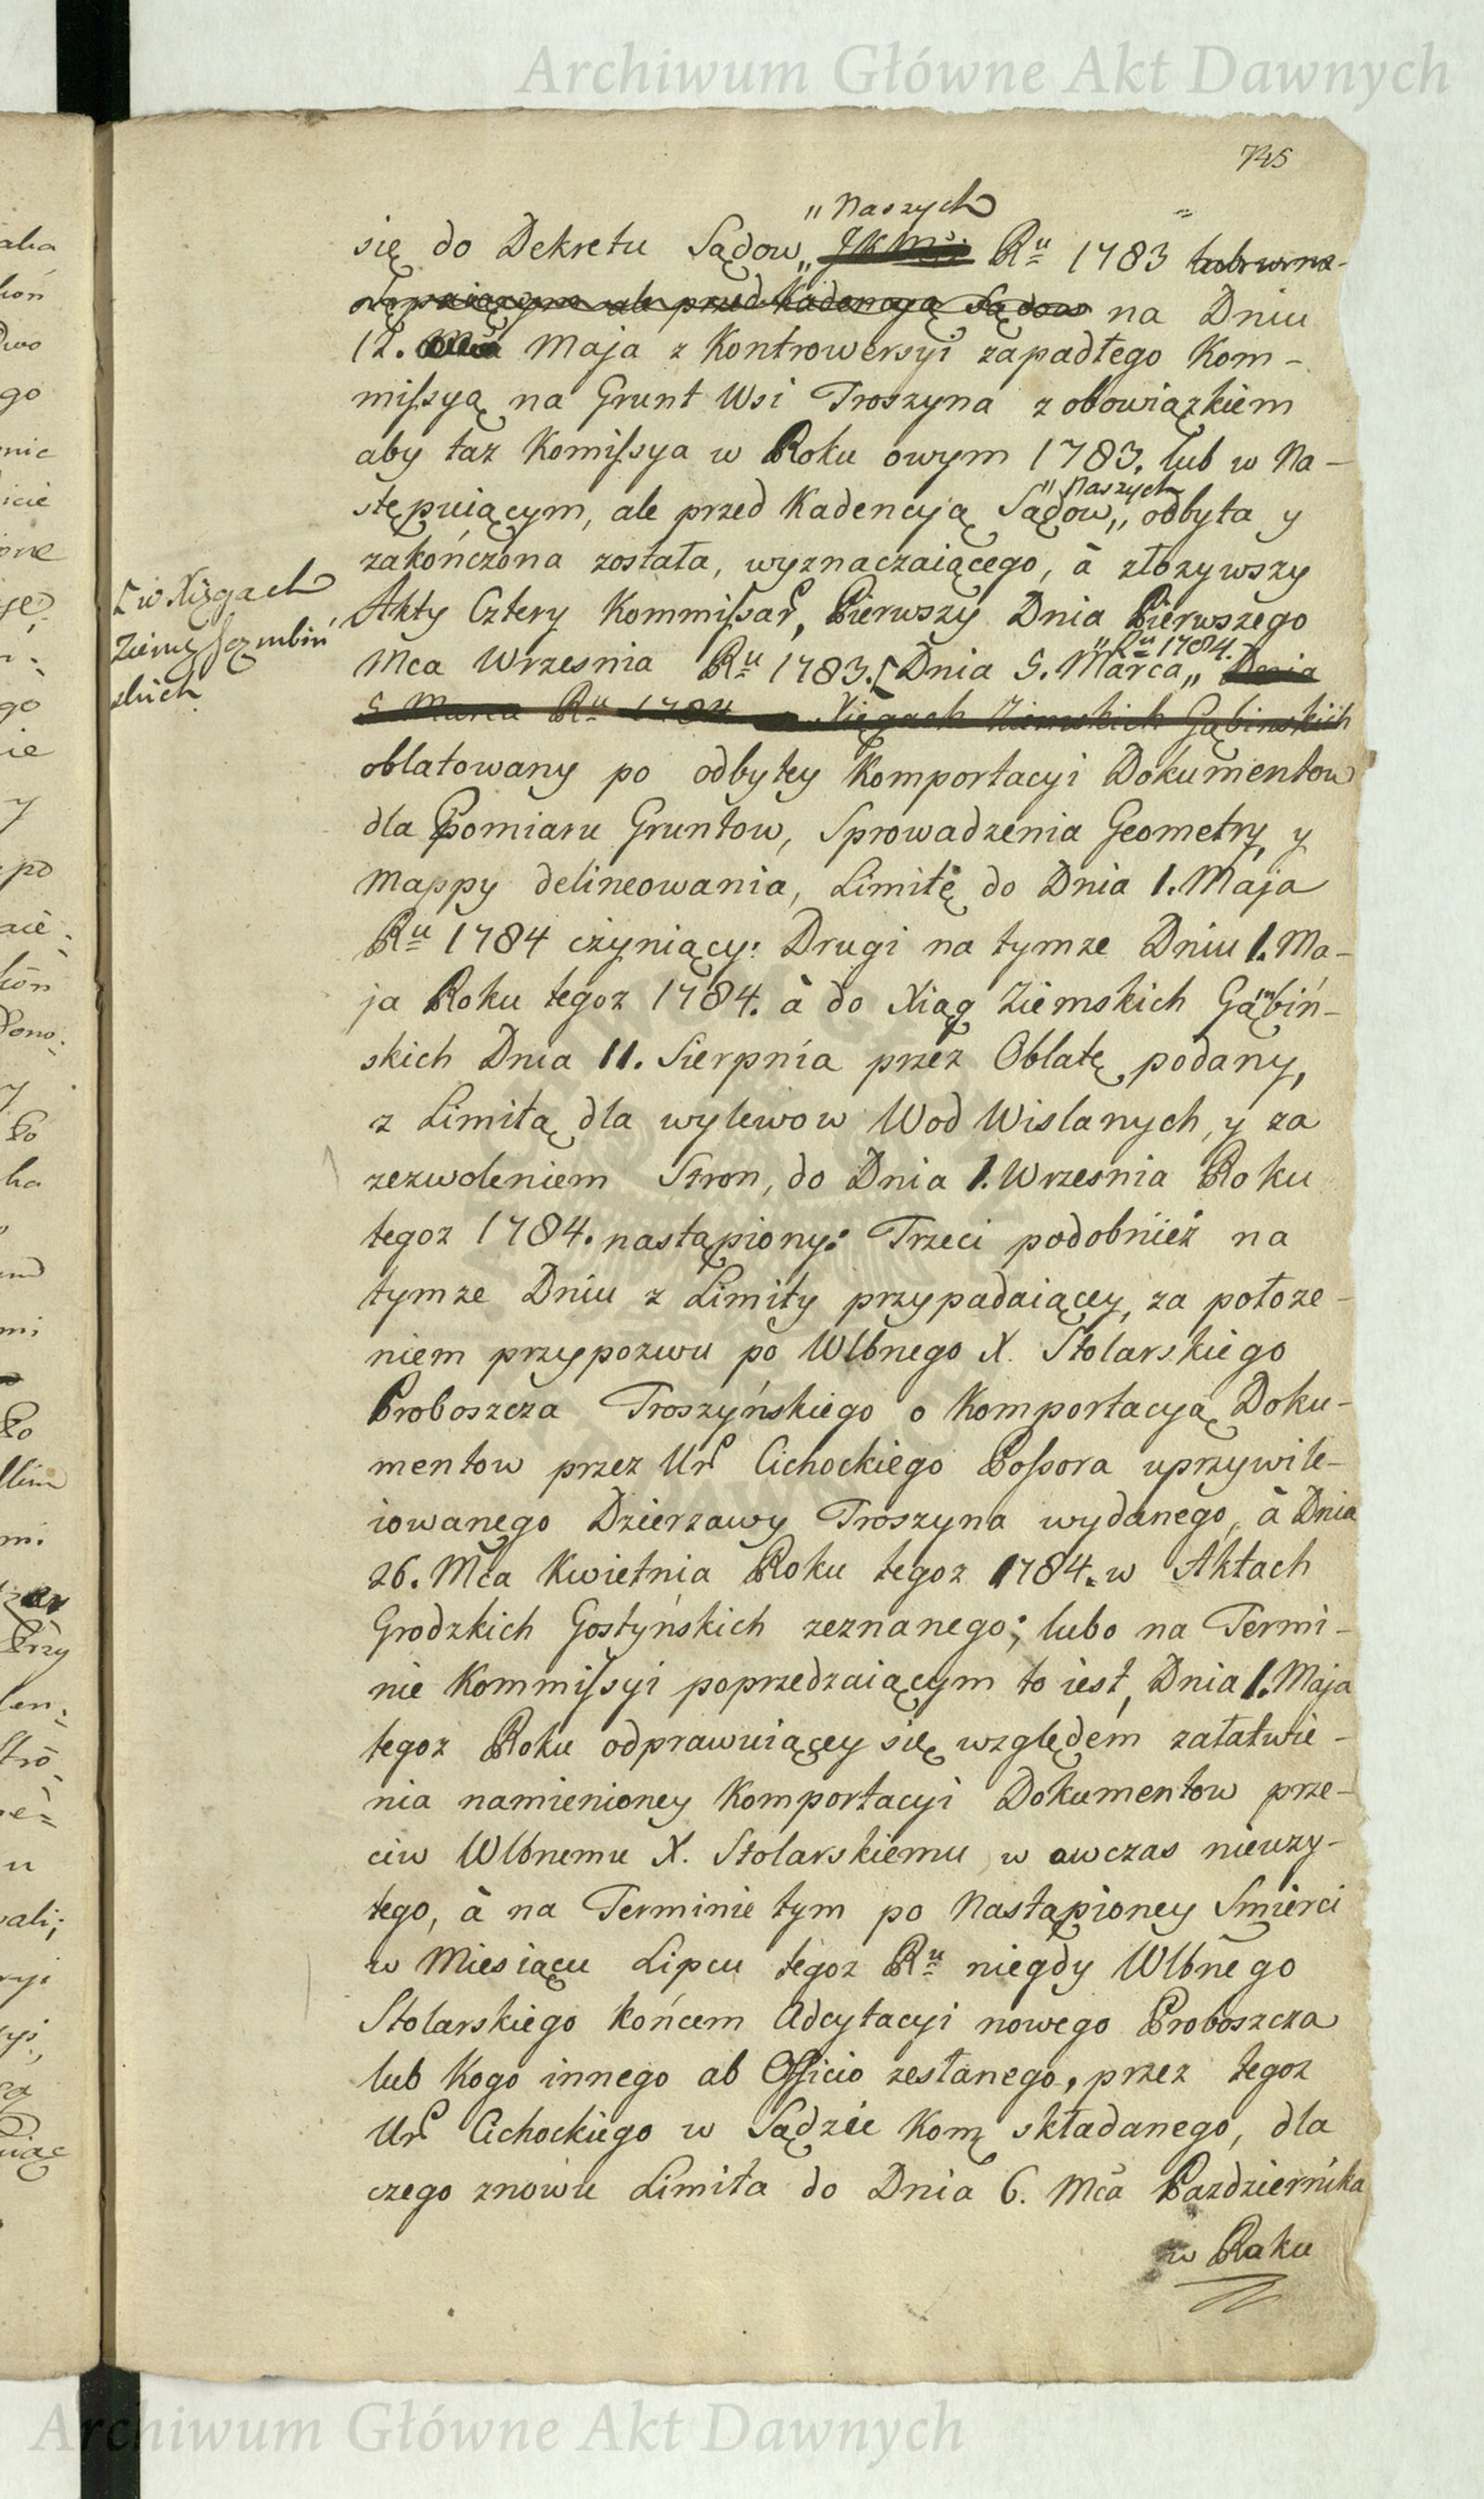 Archiwum Główne Akt Dawnych
745
„ Naszych
się do Dekretu Sądow„ JKMci Ru 1783 lub w na-
stępuiącym ale przed Kadencyą Sądow na Dniu
12. Maja z Kontrowersyi zapadłego Kom-
missyą na Grunt Wsi Troszyna z obowiązkiem
aby taz Komissya w Roku owym 1783. lub w Na-
„ Naszych
stępuiącym, ale przed Kadencyją Sądow„ odbyta y
zakończona została, wyznaczaiącego, à złozywszy
[w Xięgach
Ziem Gąmbiń
skich
Akty Cztery Kommissar, Pierwszy Dnia Pierwszego
„ Ru 1784.
Mca Wrzesnia Ru 1783.[ Dnia 5. Marca„ Dnia
5 Marca Ru 1784 w Xięgach Ziemskich Gąbinskich
oblatowany po odbytey Komportacyi Dokumentow
dla Pomiaru Gruntow, Sprowadzenia Geometry, y
Mappy delineowania, Limitę do Dnia 1. Maja
Ru 1784 czyniący: Drugi na tymze Dniu 1. Ma-
ja Roku tegoz 1784. à do Xiąg Ziemskich Gąmbiń-
skich Dnia 11. Sierpnia przez Oblatę podany,
z Limitą dla wylewow Wod Wislanych, y za
zezwoleniem Stron, do Dnia 1. Wrzesnia Roku
tegoz 1784. nastąpiony: Trzeci podobnież na
tymze Dniu z Limity przypadaiącey, za położe-
niem przypozwu po Wlbnego X. Stolarskiego
Proboszcza Troszyńskiego o Komportacyą Doku-
mentow przez Ur Cichockiego Possora uprzywile-
iowanego Dzierzawy Troszyna wydanego, à Dnia
26. Mca Kwietnia Roku tegoz 1784. w Aktach
Grodzkich Gostyńskich zeznanego; lubo na Termi-
nie Kommissyi poprzedzaiącym to iest, Dnia 1. Maja
tegoz Roku odprawuiącey się względem załatwie-
nia namienioney Komportacyi Dokumentow prze-
ciw Wlbnemu X. Stolarskiemu w owczas nieuzy-
tego, à na Terminie tym po Nastąpioney Smierci
w Miesiącu Lipcu tegoz Ru niegdy Wlbnego
Stolarskiego końcem Adcytacyi nowego Proboszcza
lub Kogo innego ab Officio zesłanego, przez tegoz
Ur Cichockiego w Sądzie Kom składanego, dla
czego znowu Limita do Dnia 6. Mca Pazdziernika
w Roku
Archiwum Główne Akt Dawnych